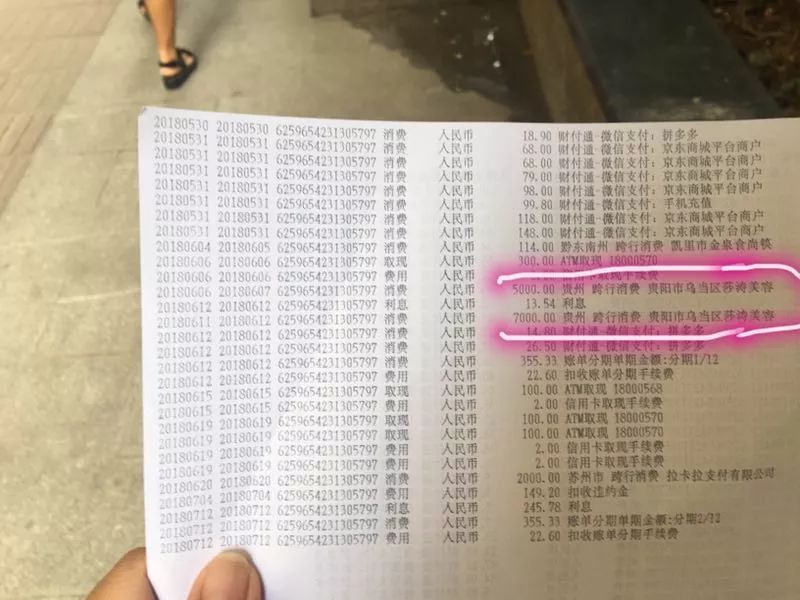 20180530 20180530 6259654231305797 消费 人民币 18.90 财付通-微信支付：拼多多
20180531 20180531 6259654231305797 消费 人民币 68.00 财付通-微信支付：京东商城平台商户
20180531 20180531 6259654231305797 消费 人民币 68.00 财付通-微信支付：京东商城平台商户
20180531 20180531 6259654231305797 消费 人民币 79.00 财付通-微信支付：京东商城平台商户
20180531 20180531 6259654231305797 消费 人民币 98.00 财付通-微信支付：京东商城平台商户
20180531 20180531 6259654231305797 消费 人民币 99.80 财付通-微信支付：手机充值
20180531 20180531 6259654231305797 消费 人民币 118.00 财付通-微信支付：京东商城平台商户
20180531 20180531 6259654231305797 消费 人民币 148.00 财付通-微信支付：京东商城平台商户
20180604 20180605 6259654231305797 消费 人民币 114.00 黔东南州 跨行消费 凯里市金泉食尚筷
20180606 20180606 6259654231305797 取现 人民币 300.00 ATM取现 18000570
20180606 20180606 6259654231305797 费用 人民币 信用卡取现手续费
20180606 20180607 6259654231305797 消费 人民币 5000.00 贵州 跨行消费 贵阳市乌当区莎涛美容
20180612 20180612 6259654231305797 利息 人民币 13.54 利息
20180611 20180612 6259654231305797 消费 人民币 7000.00 贵州 跨行消费 贵阳市乌当区莎涛美容
20180612 20180612 6259654231305797 消费 人民币 14.80 财付通-微信支付：拼多多
20180612 20180612 6259654231305797 消费 人民币 26.50 财付通-微信支付：拼多多
20180612 20180612 6259654231305797 消费 人民币 355.33 账单分期单期金额:分期1/12
20180612 20180612 6259654231305797 费用 人民币 22.60 扣收账单分期手续费
20180615 20180615 6259654231305797 取现 人民币 100.00 ATM取现 18000568
20180615 20180615 6259654231305797 费用 人民币 2.00 信用卡取现手续费
20180619 20180619 6259654231305797 取现 人民币 100.00 ATM取现 18000570
20180619 20180619 6259654231305797 取现 人民币 100.00 ATM取现 18000570
20180619 20180619 6259654231305797 费用 人民币 2.00 信用卡取现手续费
20180619 20180619 6259654231305797 费用 人民币 2.00 信用卡取现手续费
20180620 20180620 6259654231305797 消费 人民币 2000.00 苏州市 跨行消费 拉卡拉支付有限公司
20180704 20180704 6259654231305797 费用 人民币 149.20 扣收违约金
20180712 20180712 6259654231305797 利息 人民币 245.78 利息
20180712 20180712 6259654231305797 消费 人民币 355.33 账单分期单期金额:分期2/12
20180712 20180712 6259654231305797 费用 人民币 22.60 扣收账单分期手续费